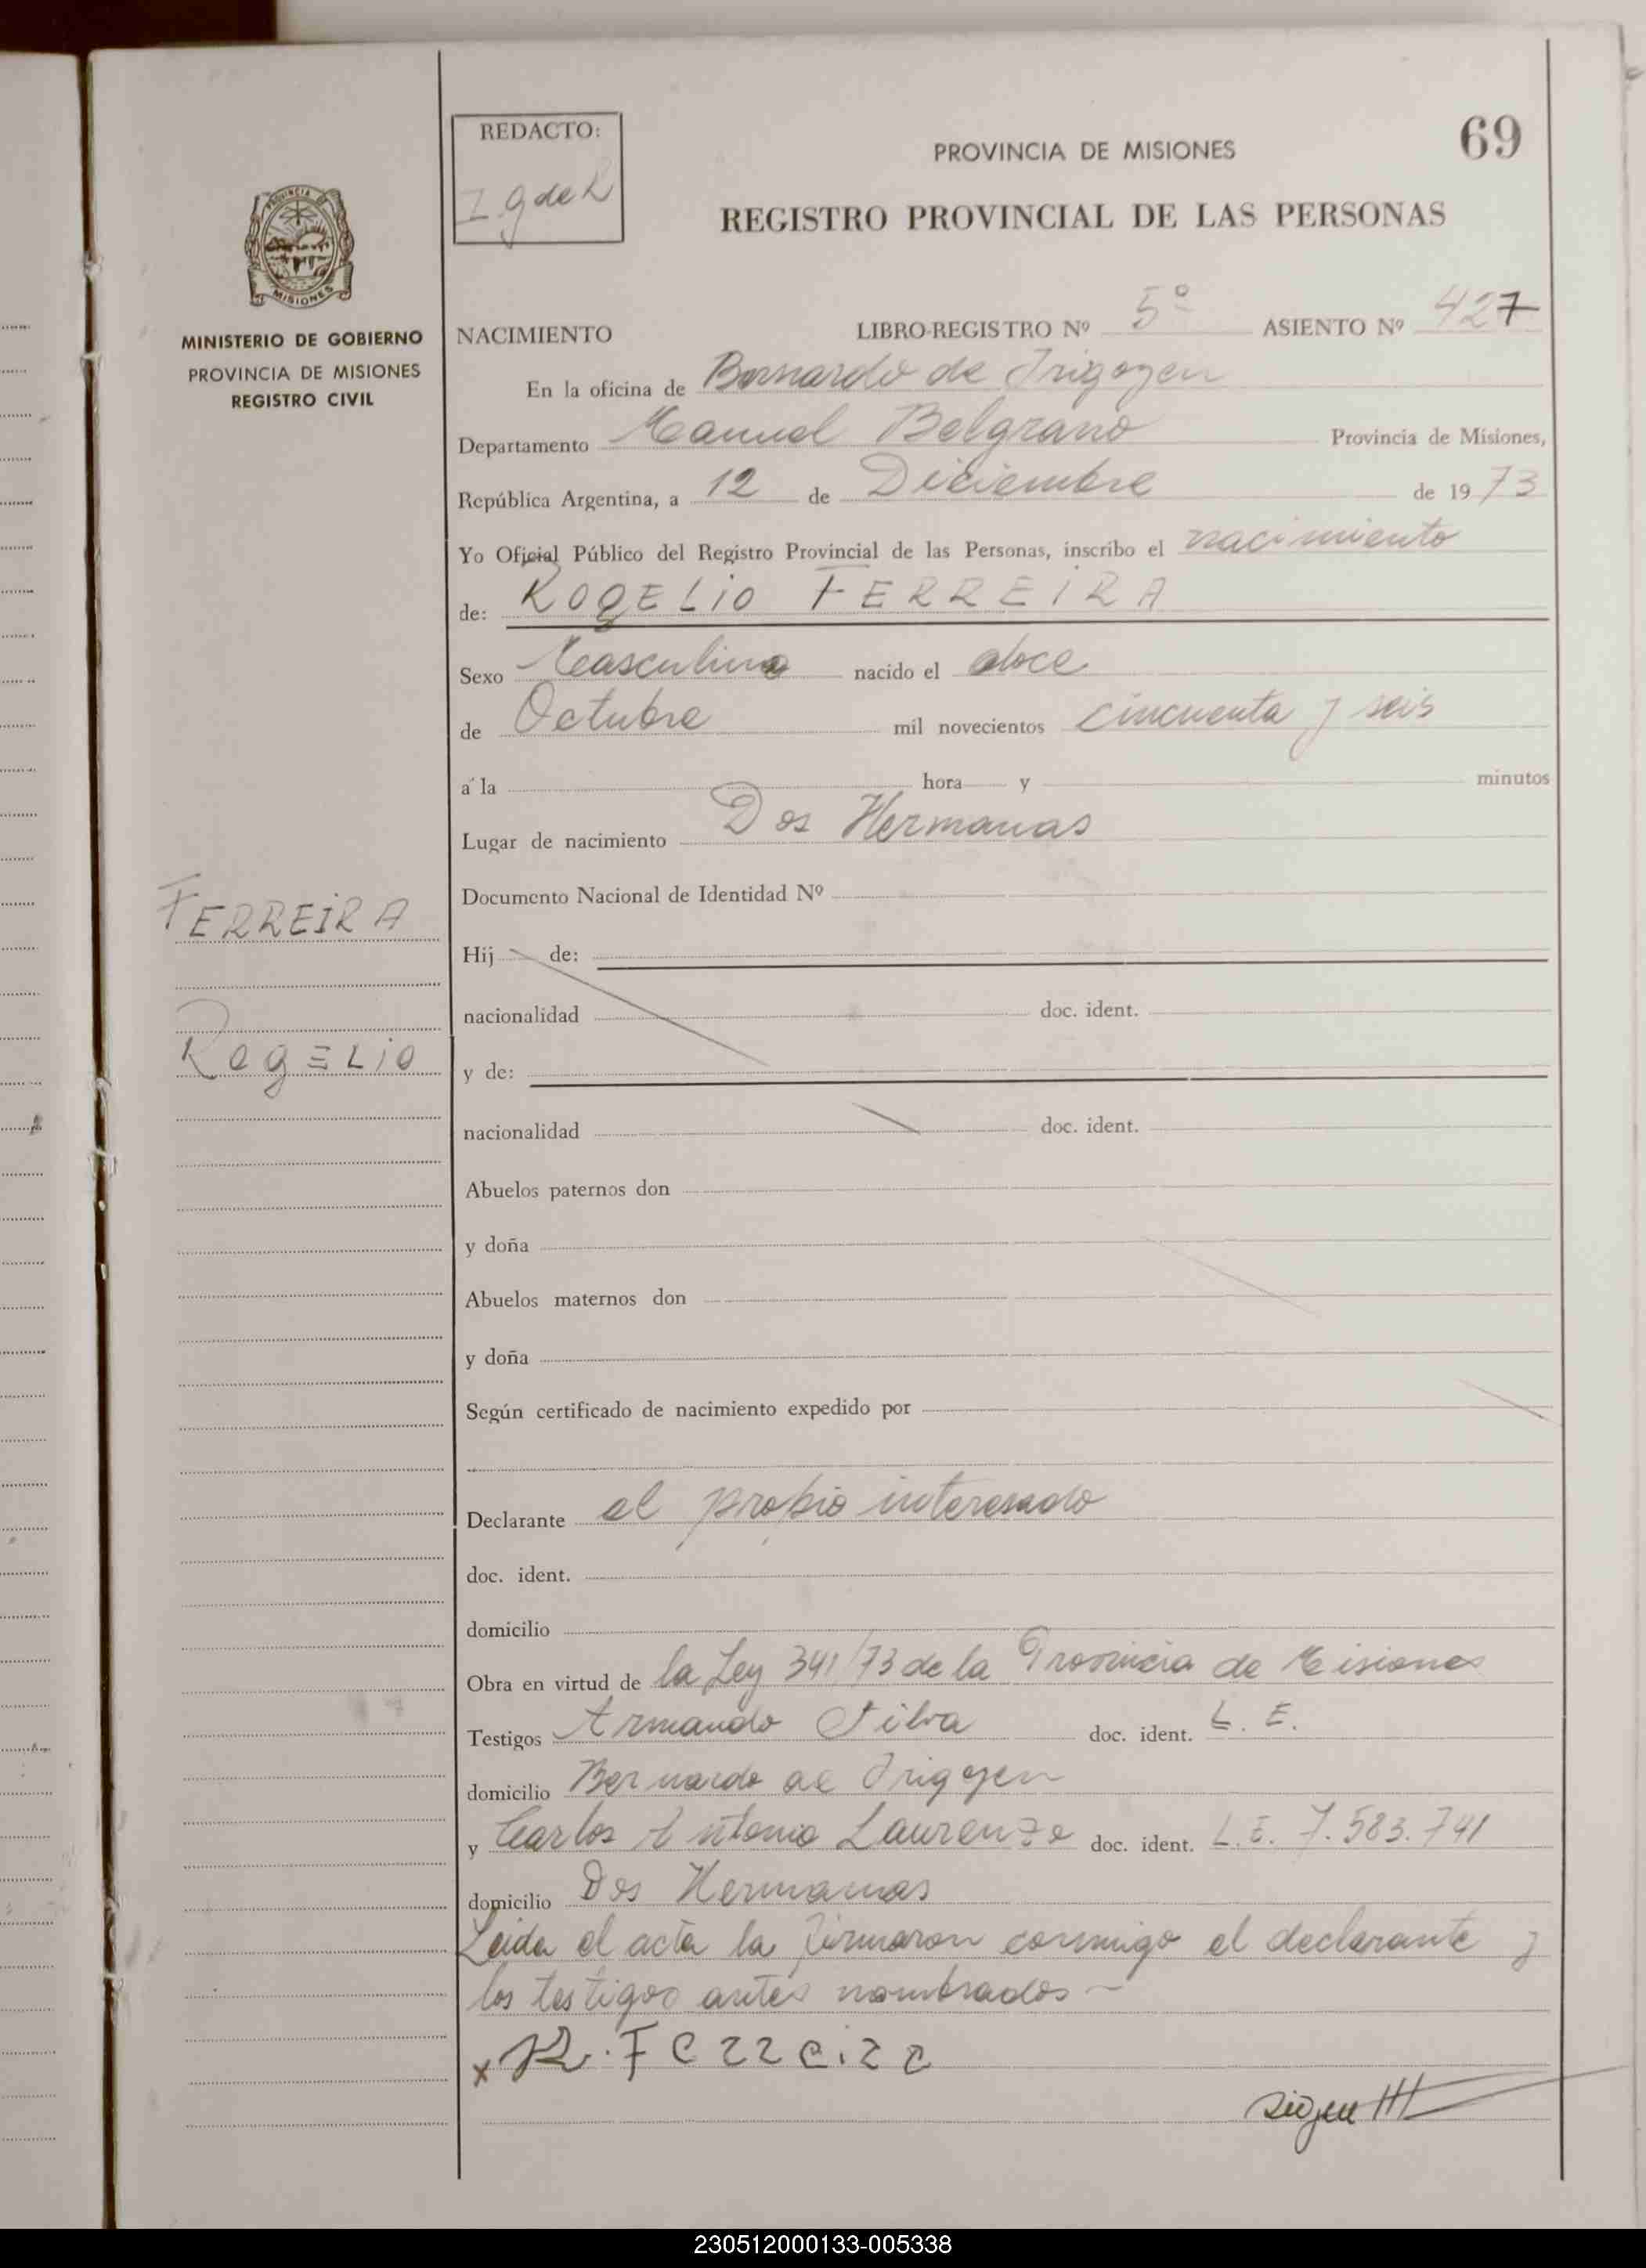 69
REDACTO:
PROVINCIA DE MISIONES
REGISTRO PROVINCIAL DE LAS PERSONAS
MISIONES
MINISTERIO DE GOBIERNO
PROVINCIA DE MISIONES
REGISTRO CIVIL
NACIMIENTO LIBRO-REGISTRO Nº 5º ASIENTO Nº 427
En la oficina de Bernardo de Irigoyen
Departamento Manuel Belgrano Provincia de Misiones,
República Argentina, a 12 de Diciembre de 19 73
Yo Oficial Público del Registro Provincial de las Personas, inscribo el nacimiento
de: ROGELIO FERREIRA
Sexo Masculino nacido el doce
de Octubre mil novecientos cincuenta y seis
a la hora y minutos
Lugar de nacimiento Dos Hermanas
Documento Nacional de Identidad Nº
FERREIRA
Hij de:
nacionalidad doc. ident.
ROGELIO
y de:
nacionalidad doc. ident.
Abuelos paternos don
y doña
Abuelos maternos don
y doña
Según certificado de nacimiento expedido por
Declarante el propio interesado
doc. ident.
domicilio
Obra en virtud de la Ley 341/73 de la Provincia de Misiones
Testigos Armando Silva doc. ident. L. E.
domicilio Bernardo de Irigoyen
y Carlos Antonio Laurenzo doc. ident. L.E. 7.583.741
domicilio Dos Hermanas
Leida el acta la firmaron conmigo el declarante y
los testigos antes nombrados -
x R. Ferreira
230512000133-005338